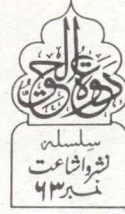 دعوة الحق
سلسلہ
نشر و اشاعت
نمبر ۶۳